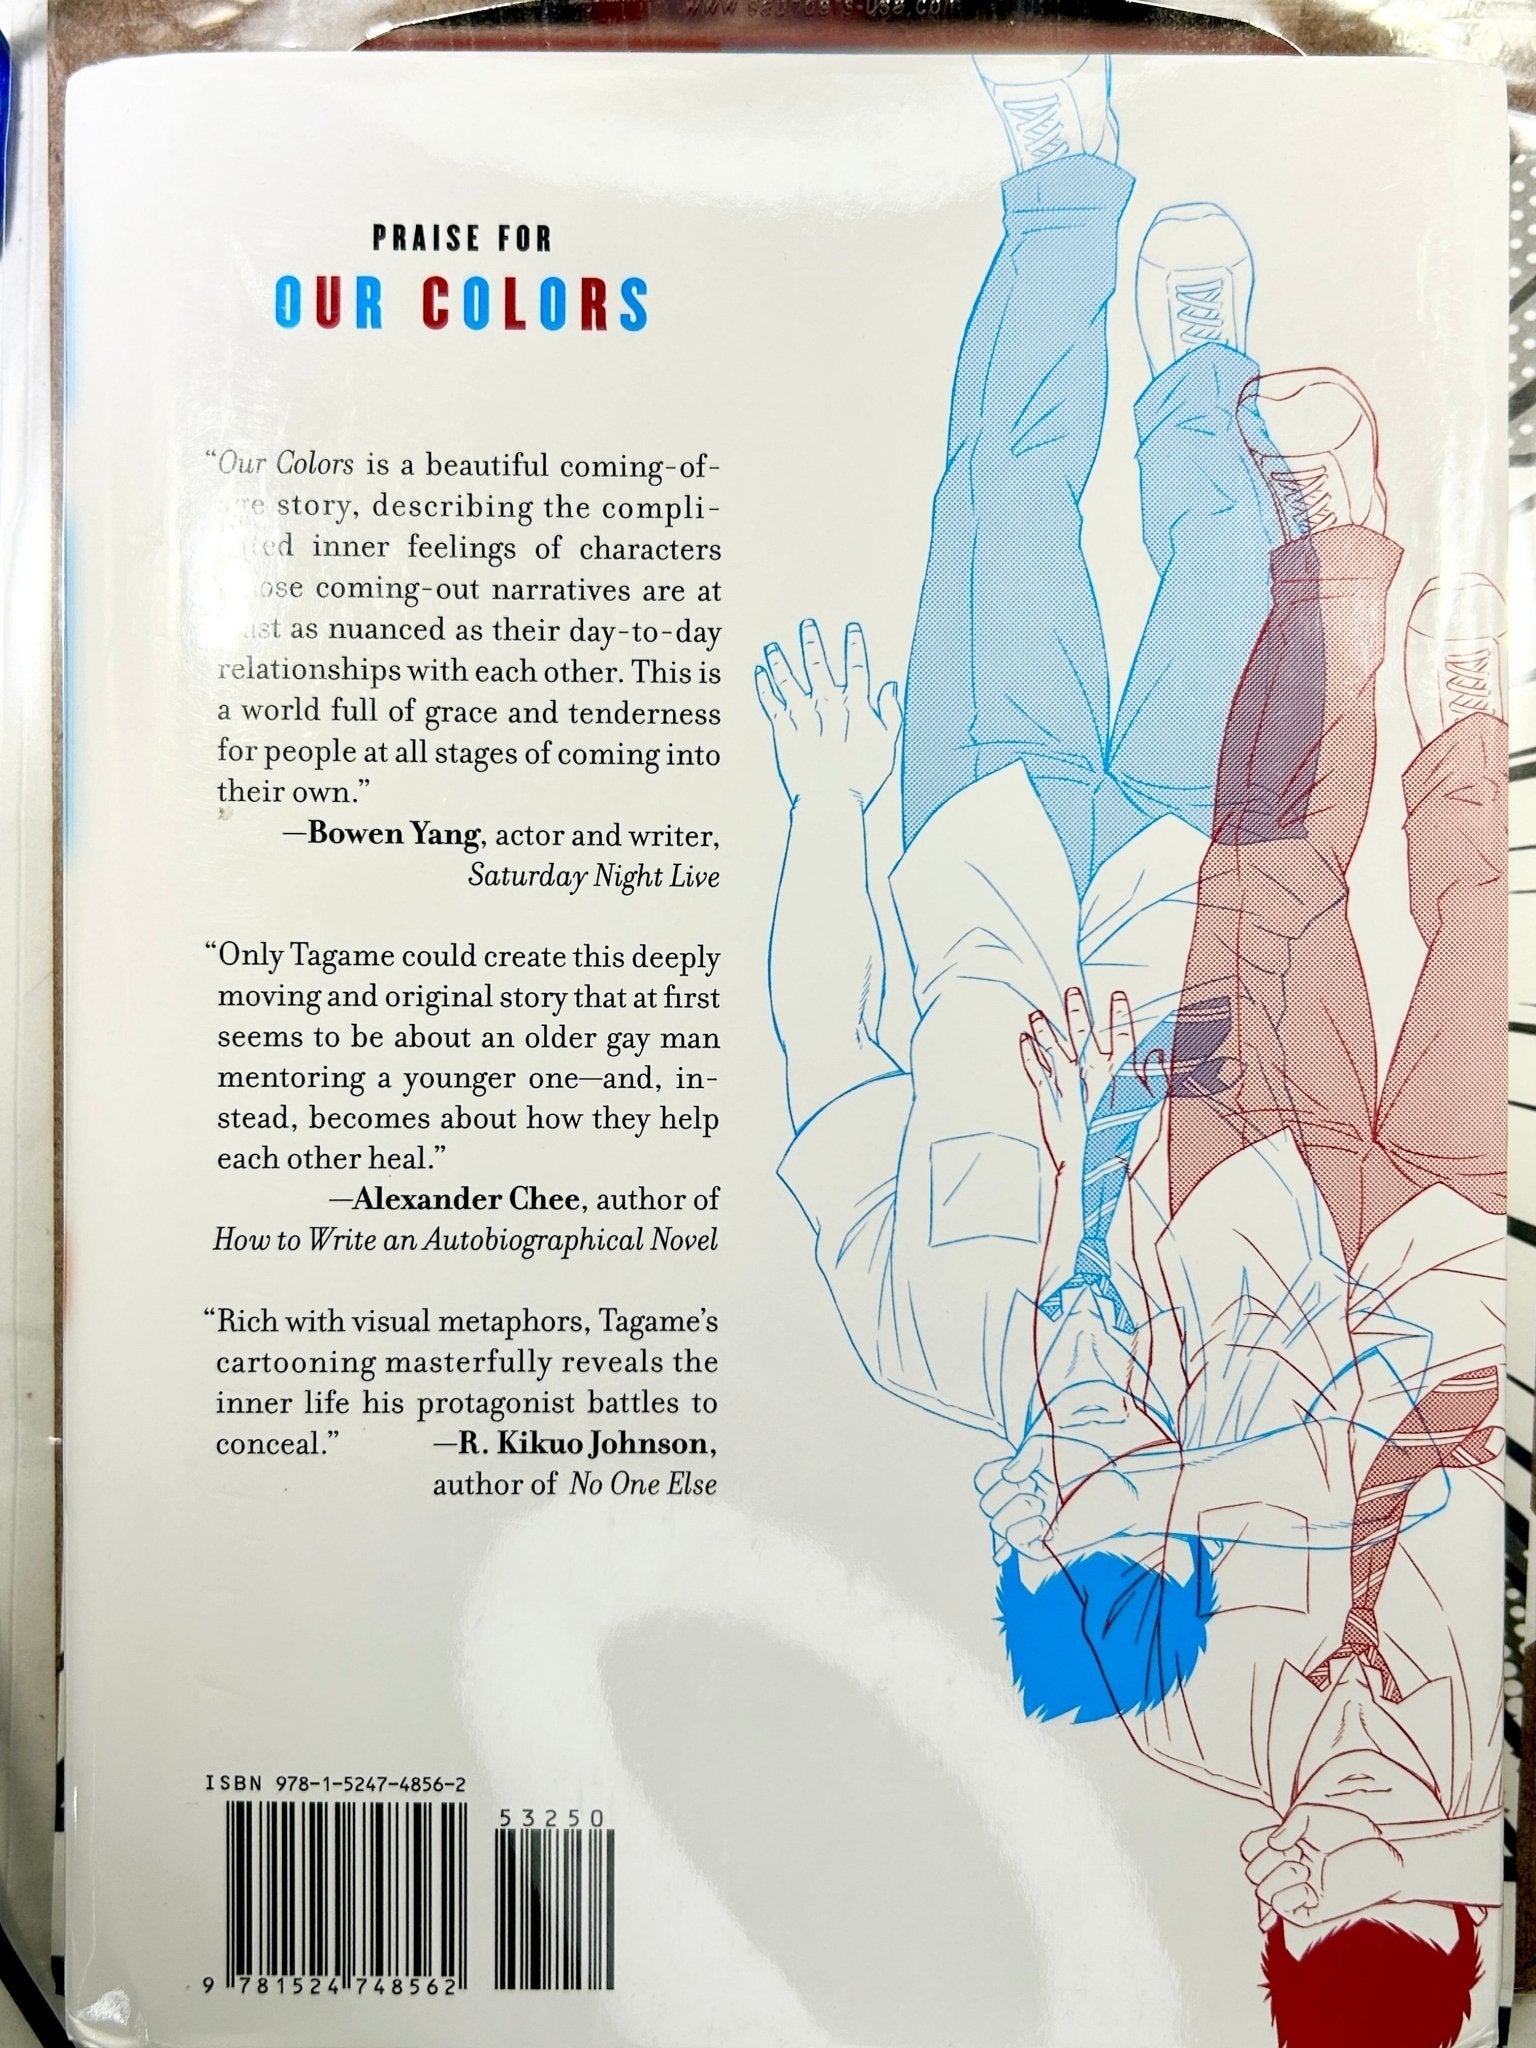 PRAISE FOR
OUR COLORS
“Our Colors is a beautiful coming-of-
age story, describing the compli-
cated inner feelings of characters
whose coming-out narratives are at
least as nuanced as their day-to-day
relationships with each other. This is
a world full of grace and tenderness
for people at all stages of coming into
their own.”
—Bowen Yang, actor and writer,
Saturday Night Live
“Only Tagame could create this deeply
moving and original story that at first
seems to be about an older gay man
mentoring a younger one—and, in-
stead, becomes about how they help
each other heal.”
—Alexander Chee, author of
How to Write an Autobiographical Novel
“Rich with visual metaphors, Tagame’s
cartooning masterfully reveals the
inner life his protagonist battles to
conceal.” —R. Kikuo Johnson,
author of No One Else
ISBN 978-1-5247-4856-2
53250
9 781524 748562